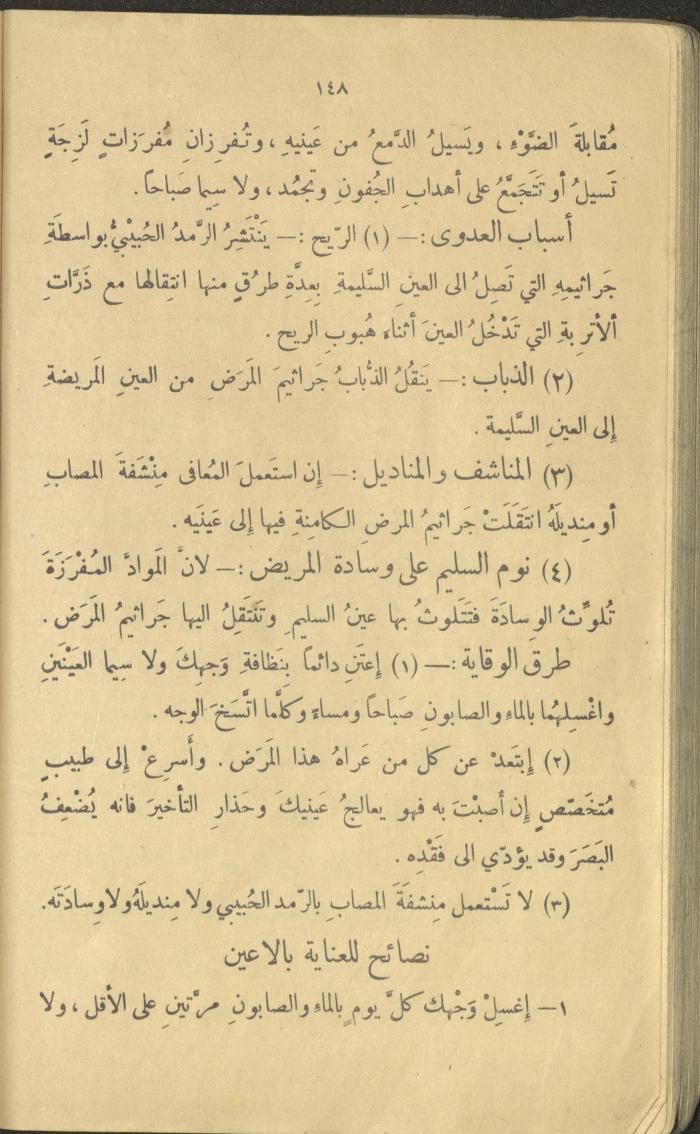 ١٤٨
مُقابلةَ الضَّوْءِ ، ويَسيلُ الدَّمعُ من عَينيهِ ، وتُفرِزانِ مُفرَزاتٍ لَزِجَةٍ
تَسيلُ أو تَتَجَمَّعُ على أهدابِ الجُفونِ وتجمُد ، ولا سيما صَباحاً .
أسباب العدوى :— (١) الرّيح :— يَنْتَشِرُ الرَّمدُ الحُبيْبيُّ بواسطةِ
جَراثيمِهِ التي تَصِلُ الى العينِ السَّليمةِ بِعِدَّةِ طرُقٍ منها انتِقالها مع ذَرَّاتِ
ألأترِبةِ التي تَدْخُلُ العينَ أثناء هُبوبِ الريح .
(٢) الذباب :— يَنقُلُ الذُّبابُ جَراثيمَ المَرَضِ من العينِ المَريضةِ
إلى العينِ السَّليمة .
(٣) المناشف والمناديل :— إن استَعملَ المُعافى مِنْشَفةَ المصابِ
أو مِنديلَهُ انتَقَلَتْ جَراثيمُ المرضِ الكامِنةِ فيها إلى عَينَيه .
(٤) نوم السليم على وسادة المريض :— لانَّ المَوادَّ المُفْرَزَةَ
تُلوِّثُ الوِسادَةَ فتَتَلوثُ بها عينُ السليمِ وتَنْتَقِلُ اليها جَراثيمُ المَرَض .
طرق الوقاية :— (١) إعتَنِ دائماً بِنَظافةِ وَجهِكَ ولا سِيما العَيْنَينِ
واغْسِلهُما بالماءِ والصابونِ صَباحاً ومساءً وكلَّما اتَّسَخَ الوجه .
(٢) إبتَعدْ عن كل من عَراهُ هذا المَرَض . وأَسرِعْ إلى طبيبٍ
مُتخَصّصٍ إن أصبْتَ به فهو يعالجُ عَينيكَ وحَذارِ التأخيرَ فانه يُضْعِفُ
البَصَرَ وقد يؤدّي الى فَقْدِه .
(٣) لا تَسْتعمل مِنشفَةَ المصابِ بالرّمد الحُبيبي ولا مِنديلَهُ ولا وِسادَتَه.
نصائح للعناية بالاعين
١— إغسِلْ وَجْهك كلَّ يومٍ بالماءِ والصابونِ مرَّتينِ على الأقل ، ولا